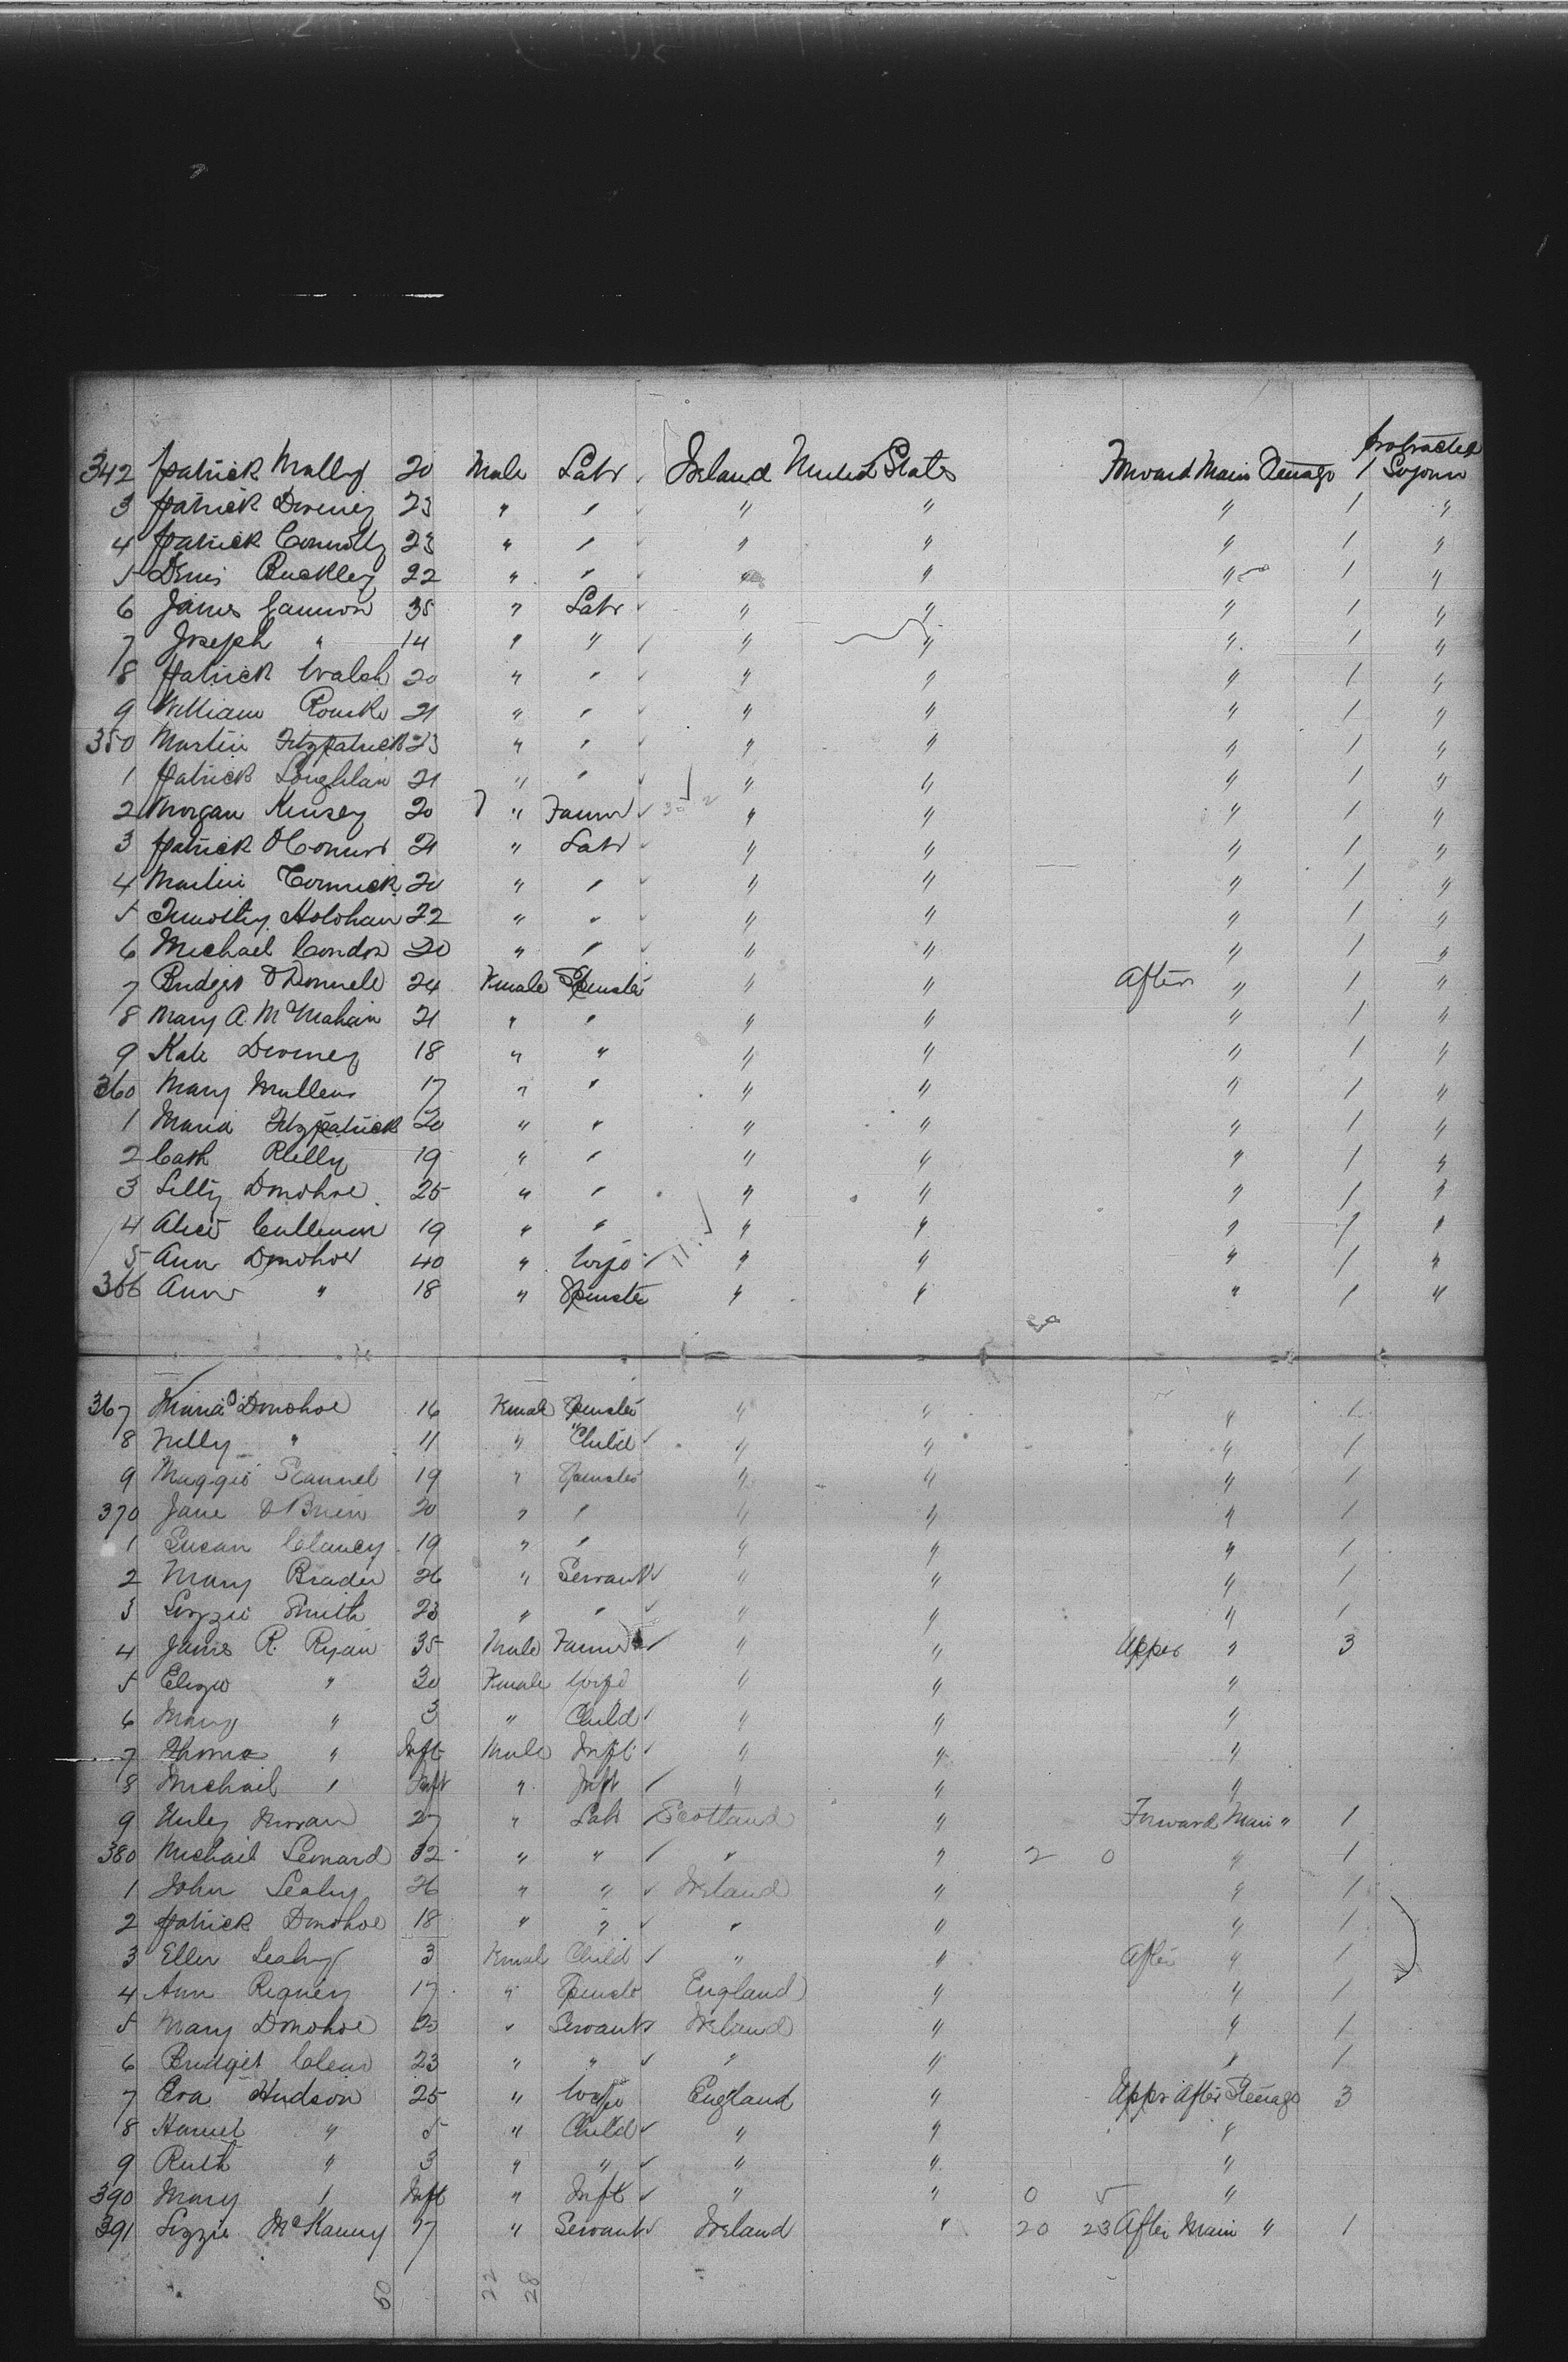 Protracted
342 Patrick Mally 20 Male Labr Ireland United States Forward Main Steerage 1 Sojourn
3 Patrick Diviney 23 " " " " " 1 "
4 Patrick Connolly 23 " " " " " 1 "
5 Denis Buckley 22 " " " " " 1 "
6 James Gannon 35 " Labr " " " 1 "
7 Joseph " 14 " " " " " 1 "
8 Patrick Walsh 20 " " " " " 1 "
9 William Rourke 21 " " " " " 1 "
350 Martin Fitzpatrick 23 " " " " " 1 "
1 Patrick Loughlan 21 " " " " " 1 "
2 Morgan Kinsey 20 " Farmr " " " 1 "
3 Patrick O'Connor 21 " Labr " " " 1 "
4 Martin Cormick 20 " " " " " 1 "
5 Timothy Holohan 22 " " " " " 1 "
6 Michael Condon 20 " " " " " 1 "
7 Bridget O'Donnell 24 Female Spinster " " After " 1 "
8 Mary A. McMahan 21 " " " " " 1 "
9 Kate Diviney 18 " " " " " 1 "
360 Mary Mullens 17 " " " " " 1 "
1 Maria Fitzpatrick 20 " " " " " 1 "
2 Cath Reilly 19 " " " " " 1 "
3 Lilly Donohoe 25 " " " " " 1 "
4 Alice Cullinan 19 " " " " " 1 "
5 Ann Donohoe 40 " Wife " " " 1 "
366 Ann " 18 " Spinster " " " 1 "
367 Maria Donohoe 16 Female Spinster " " " 1
8 Nelly " 11 " Child " " " 1
9 Maggie Scannel 19 " Spinster " " " 1
370 Jane O'Brien 20 " " " " " 1
1 Susan Clancy 19 " " " " " 1
2 Mary Brader 26 " Servant " " " 1
3 Lizzie Smith 23 " " " " " 1
4 James R. Ryan 35 Male Farmer " " Upper " 3
5 Eliza " 30 Female Wife " " "
6 Mary " 3 " Child " " "
7 Thomas " Inft Male Inft " " "
8 Michail " Inft " Inft " " "
9 Moran 27 " Labr Scotland " Forward Main " 1
380 Michail Leonard 32 " " " " 2 0 " 1
1 John Leahy 26 " " Ireland " " 1
2 Patrick Donohoe 18 " " " " " 1
3 Ellen Leahy 3 Female Child " " After " 1
4 Ann Rigney 17 " Spinster England " " 1
5 Mary Donohoe 20 " Servant Ireland " " 1
6 Bridget Clear 23 " " " " " 1
7 Eva Hudson 25 " Wife England " Upper After Steerage 3
8 Harriet " 5 " Child " " "
9 Ruth " 3 " " " " "
390 Mary " Inft " Inft " " 0 5 "
391 Lizzie McKanny 27 " Servant Ireland " 20 23 After Main " 1
50 22 28